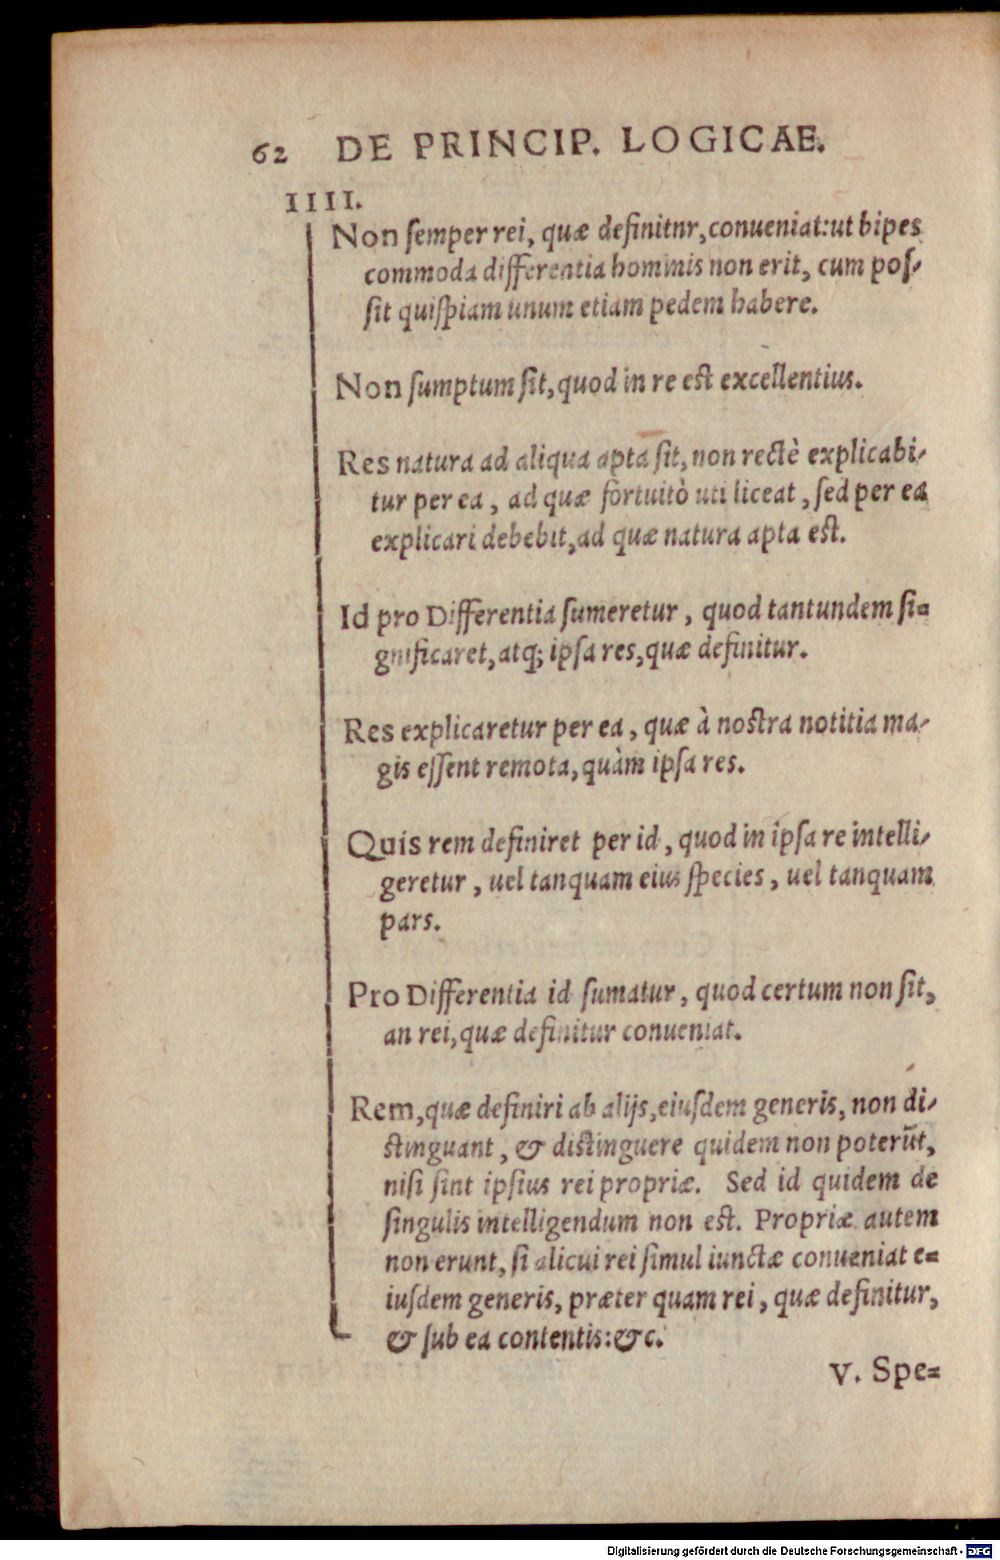 62 DE PRINCIP. LOGICAE.
IIII.
Non ſemper rei, quæ definitnr, conueniat: ut bipes
commoda differentia hominis non erit, cum poſ-
ſit quiſpiam unum etiam pedem habere.
Non ſumptum ſit, quod in re est excellentius.
Res natura ad aliqua apta ſit, non rectè explicabi-
tur per ea, ad quæ fortuitò uti liceat, ſed per ea
explicari debebit, ad quæ natura apta est.
Id pro Differentia ſumeretur, quod tantundem ſi=
gnificaret, atq; ipſa res, quæ definitur.
Res explicaretur per ea, quæ à nostra notitia ma-
gis eſſent remota, quàm ipſa res.
Quis rem definiret per id, quod in ipſa re intelli-
geretur, uel tanquam eius ſpecies, uel tanquam
pars.
Pro Differentia id ſumatur, quod certum non ſit,
an rei, quæ definitur conueniat.
Rem, quæ definiri ab alijs, eiuſdem generis, non di-
stinguant, & distinguere quidem non poterūt,
niſi ſint ipſius rei propriæ. Sed id quidem de
ſingulis intelligendum non est. Propriæ autem
non erunt, ſi alicui rei ſimul iunctæ conueniat e=
iuſdem generis, præter quam rei, quæ definitur,
& ſub ea contentis: &c.
V. Spe=
Digitalisierung gefördert durch die Deutsche Forschungsgemeinschaft - DFG